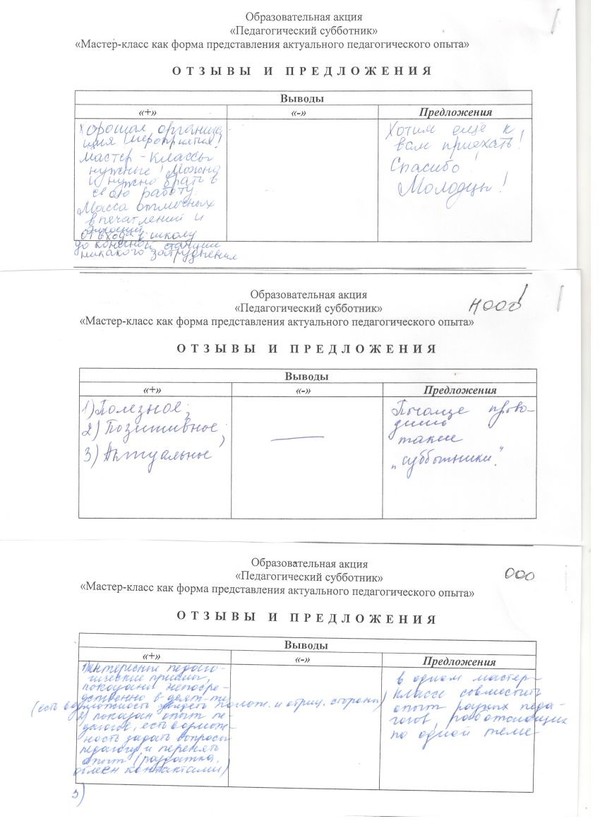 Образовательная акция
«Педагогический субботник»
«Мастер-класс как форма представления актуального педагогического опыта»
ОТЗЫВЫ И ПРЕДЛОЖЕНИЯ
Выводы
«+» «-» Предложения
Хорошая организа-
ция (мероприятия)!
Мастер-классы
нужные! Можно
и нужно брать в
свою работу
Масса
впечатлений и
школу
до конечной станции
никакого затруднения
Хотим еще к
вам приехать!
Спасибо!
Молодцы!
Образовательная акция
«Педагогический субботник»
«Мастер-класс как форма представления актуального педагогического опыта»
НООС
ОТЗЫВЫ И ПРЕДЛОЖЕНИЯ
Выводы
«+» «-» Предложения
1) Полезное;
2) Позитивное;
3) Актуальное
—
Почаще прово-
дить
такие
„субботники".
Образовательная акция
«Педагогический субботник»
«Мастер-класс как форма представления актуального педагогического опыта»
ООО
ОТЗЫВЫ И ПРЕДЛОЖЕНИЯ
Выводы
«+» «-» Предложения
Интересные педаго-
гические приемы,
показаны непосре-
дственно в деят-ти
(есть возможность увидеть полож. и отриц. стороны)
2) показан опыт пе-
дагогов, есть возмож-
ность задать вопросы
педагогу и перенять
опыт (
обмен контактами)
3)
в одном мастер-
классе совместить
опыт разных педа-
гогов, работающих
по одной теме